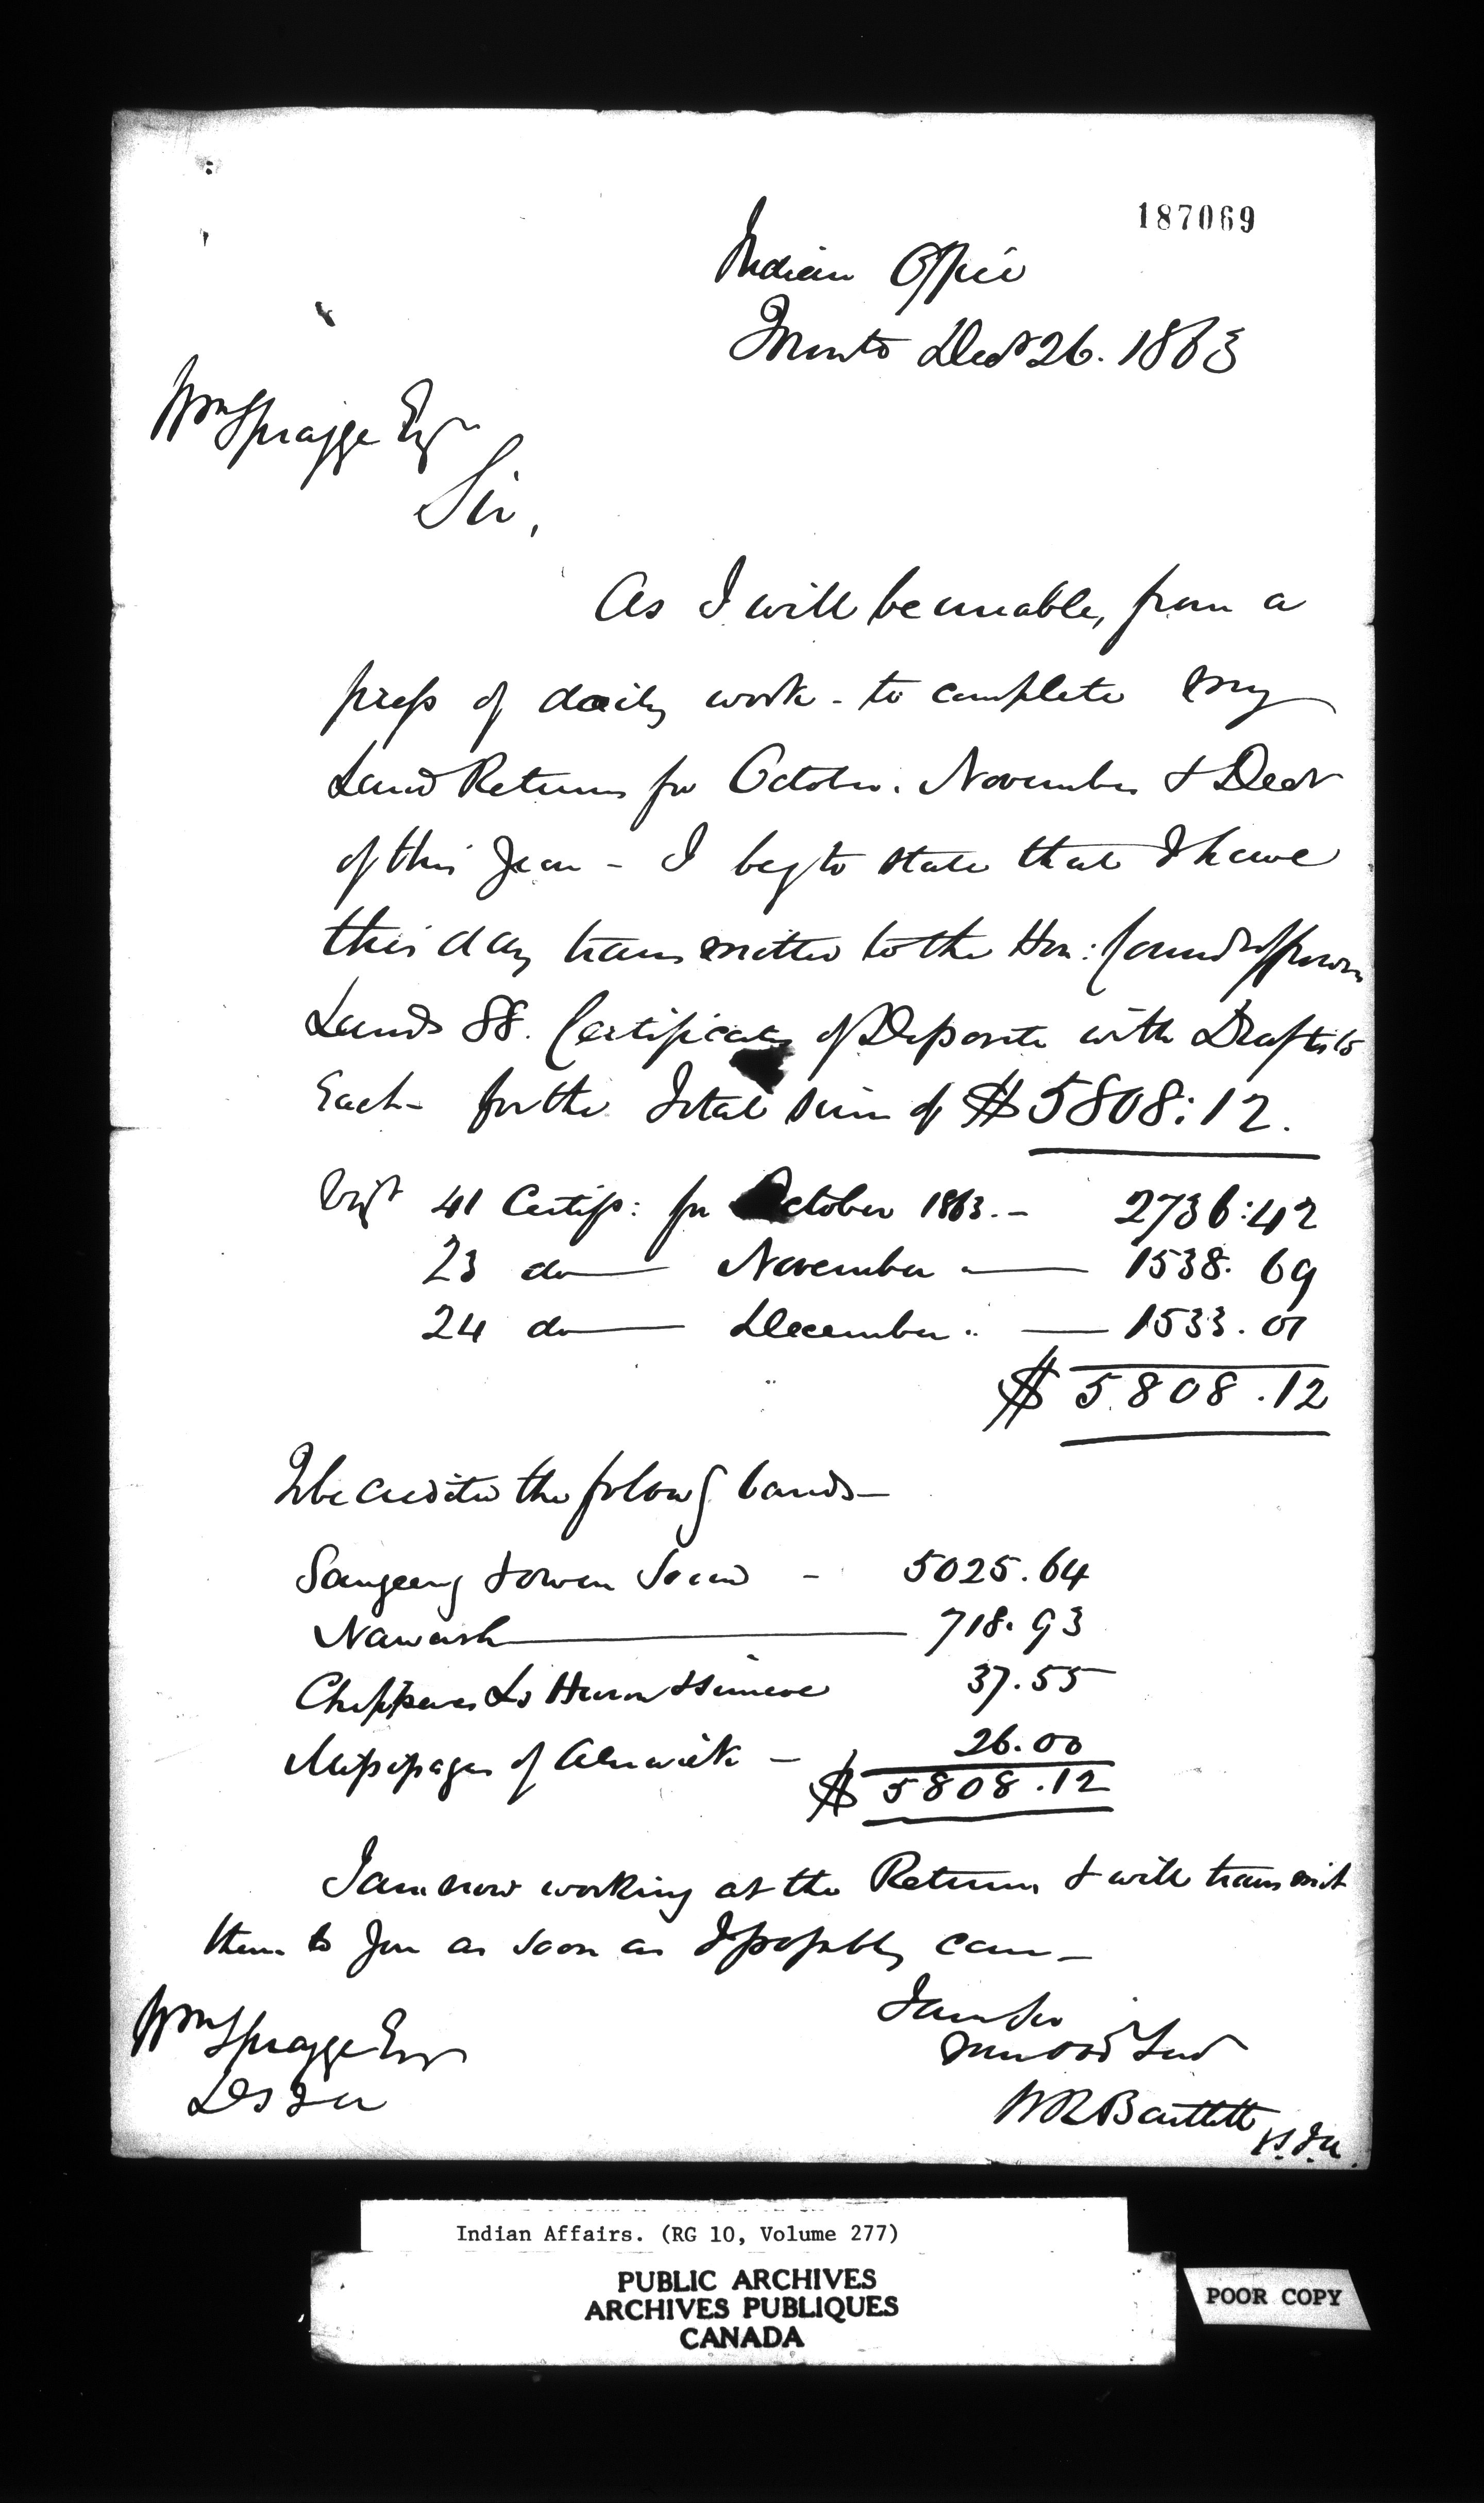 187069
Indian Office
Toronto Decr 26. 1863
Wm Spragge Esqr
Sir,
As I will be unable, from a
press of daily work - to complete my
Land Returns for October. November & Decr
of this Year - I beg to state that I have
this day transmitted to the Hon: Commr of Crown
Lands 88. Certificates of Deposite with Drafts to
Each - for the Total sum of $5808:12.
Vizt 41 Certif: for October 1863. - 2736:42
23 do — November — 1538. 69
24 do — December. — 1533. 01
$ 5808.12
To be credited the follows bands -
Saugeeng & Owen Sound - 5025.64
Nawash — 718.93
Chippewas Ls Huron & Simcoe 37.55
Missisagas of Alnwick - 26.00
$ 5808.12
I am now working at the Returns & will transmit
them to you as soon as I possibly can -
I am Sir
Your obt Servt
Wm Spragge Esqr
D S I A
W R Bartlett
V.S.I.A.
Indian Affairs. (RG 10, Volume 277)
PUBLIC ARCHIVES
ARCHIVES PUBLIQUES
CANADA
POOR COPY